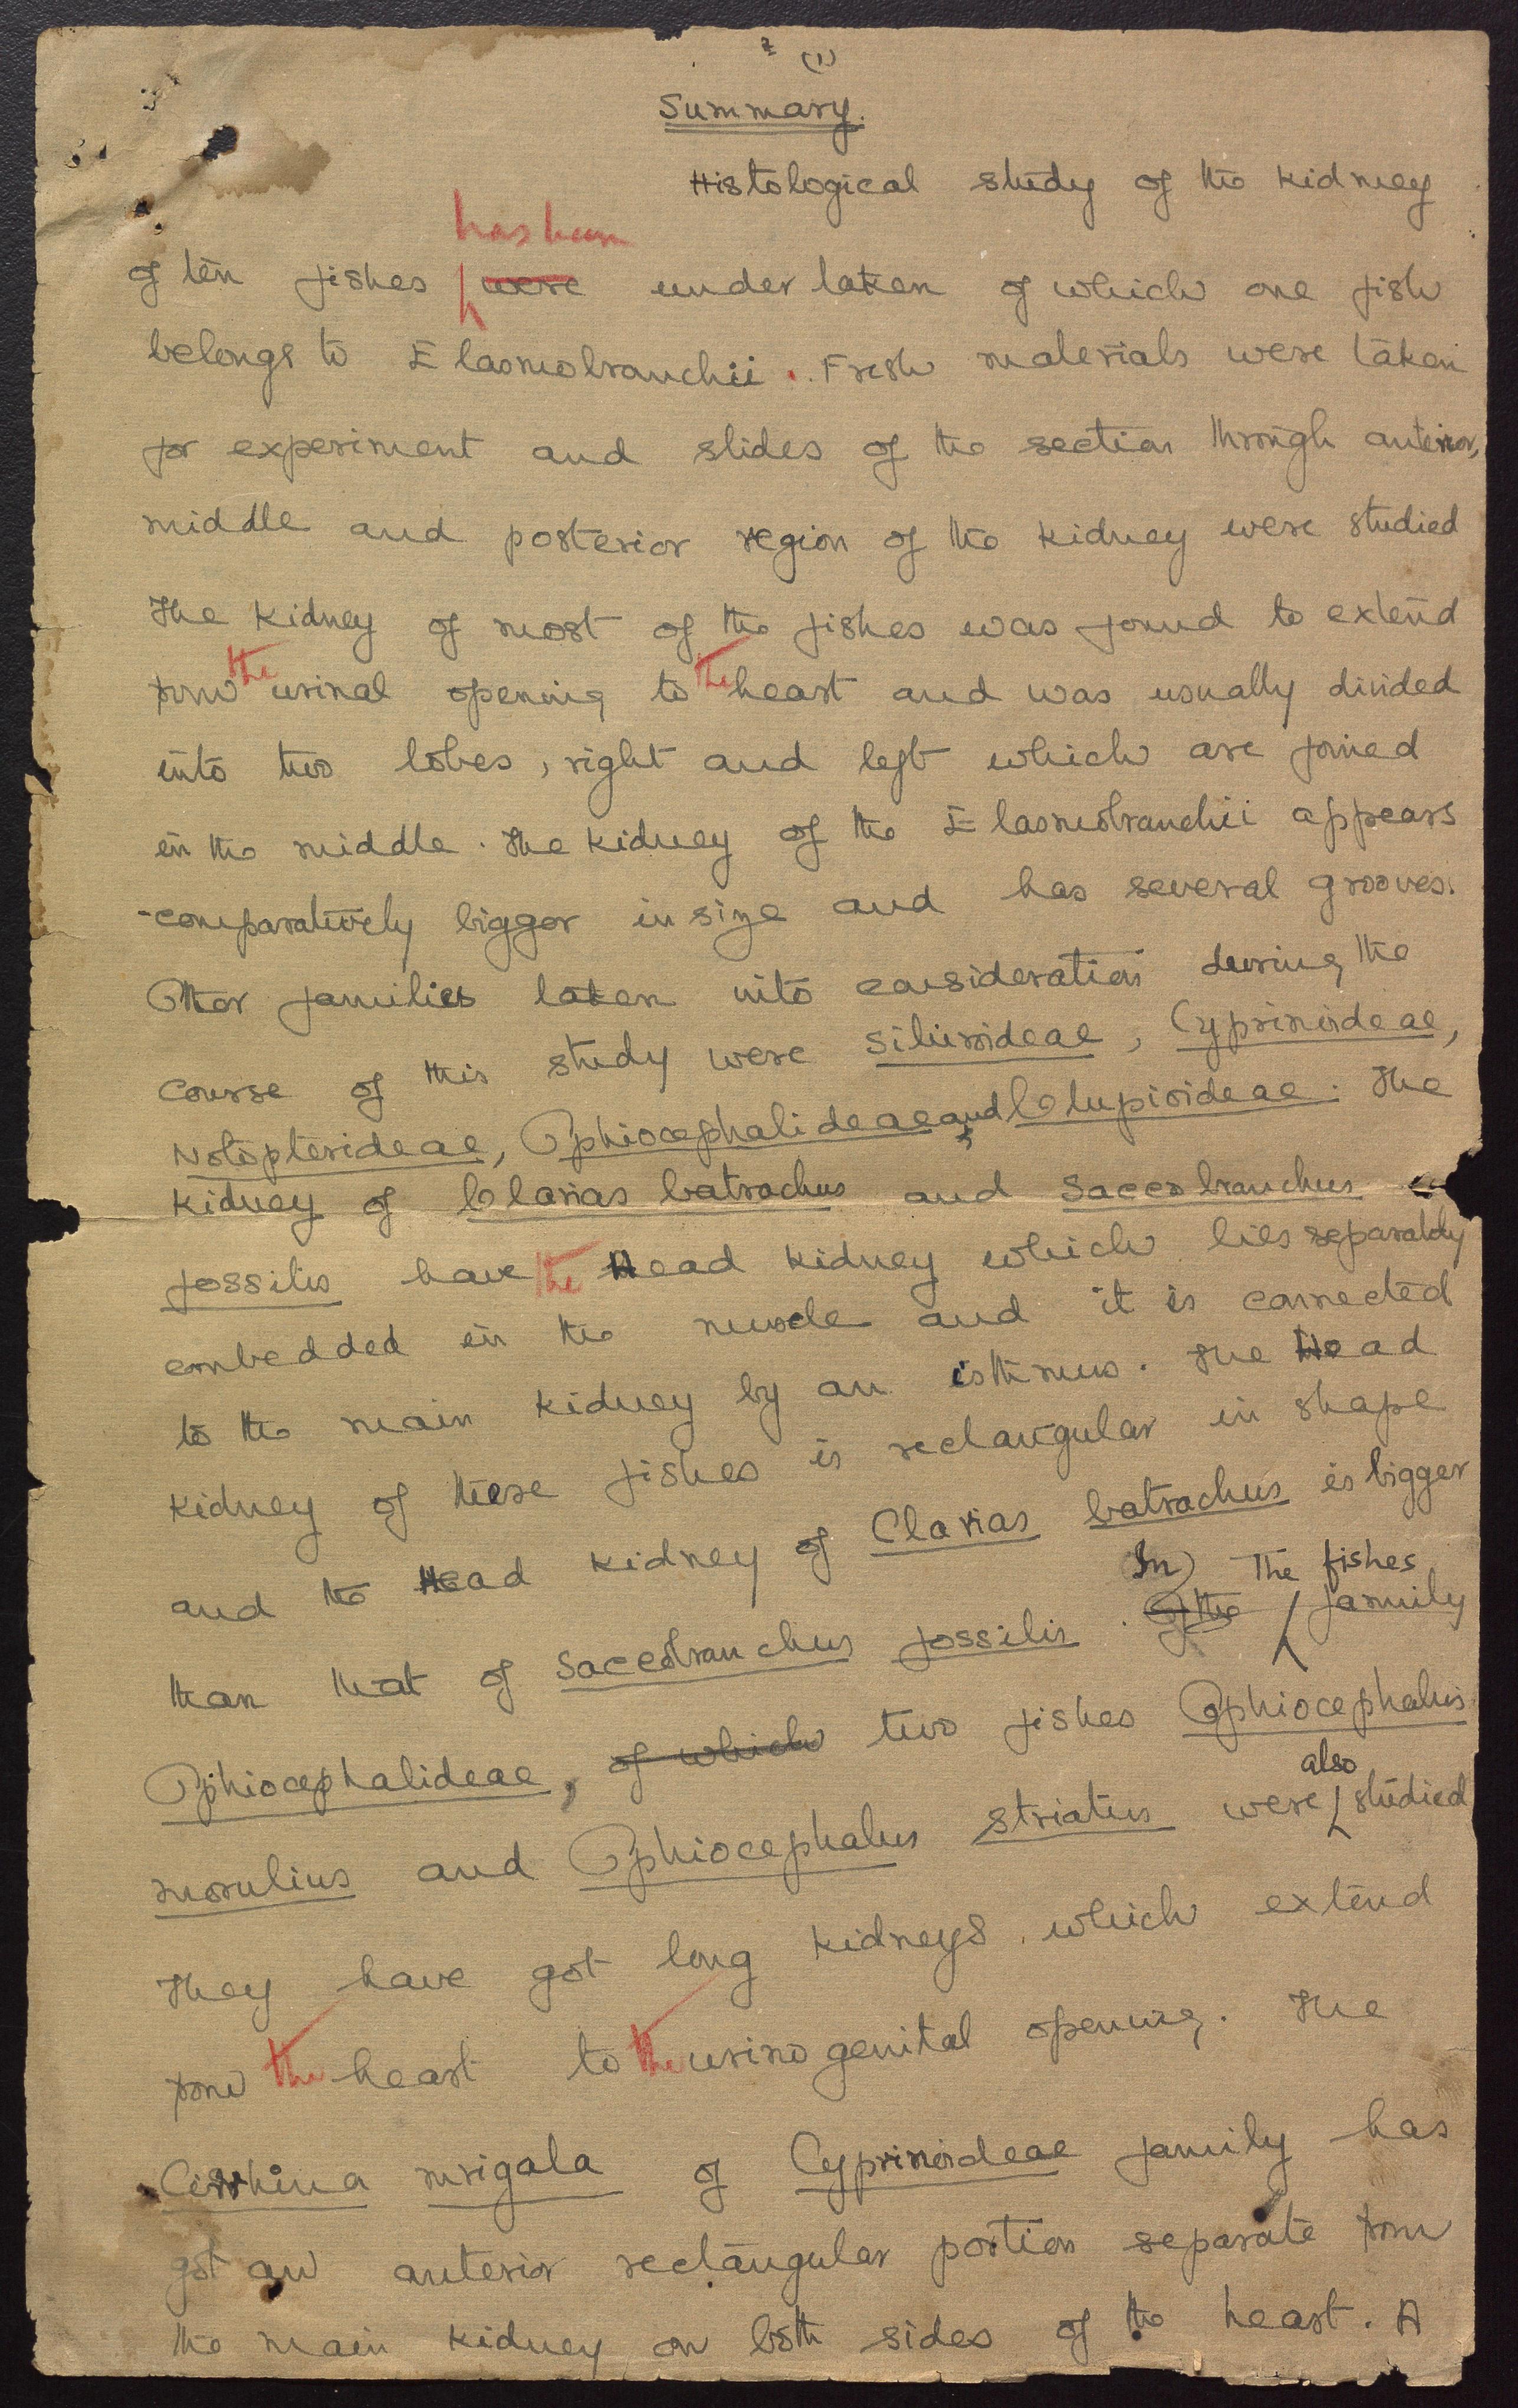 (1)
Summary.
Histological study of the kidney
has been
of ten fishes were under taken of which one fish
belongs to Elasmobranchii. Fresh materials were taken
for experiment and slides of the section through anterior,
middle and posterior region of the kidney were studied
The kidney of most of the fishes was found to extend
from the urinal opening to the heart and was usually divided
into two lobes, right and left which are joined
in the middle. The kidney of the Elasmobranchii appears
comparatively bigger in size and has several grooves.
Other families taken into consideration during the
course of this study were Siluroideae, Cyprinoideae,
Notopterideae, Ophiocephalideae and Clupioideae. The
kidney of Clarias batrachus and Saccobranchus
fossilis have the Head kidney which lies separately
embedded in the muscle and it is connected
to the main kidney by an isthmus. The Head
kidney of these fishes is rectangular in shape
and the Head kidney of Clarias batrachus is bigger
In The fishes
than that of Saccobranchus fossilis. Of the family
Ophiocephalideae, of which two fishes Ophiocephalus
also
morulius and Ophiocephalus striatus were studied
They have got long kidneys which extend
from the heart to the urinogenital opening. The
Cirrhina mrigala of Cyprinoideae family has
got an anterior rectangular portion separate from
the main kidney on both sides of the heart. A